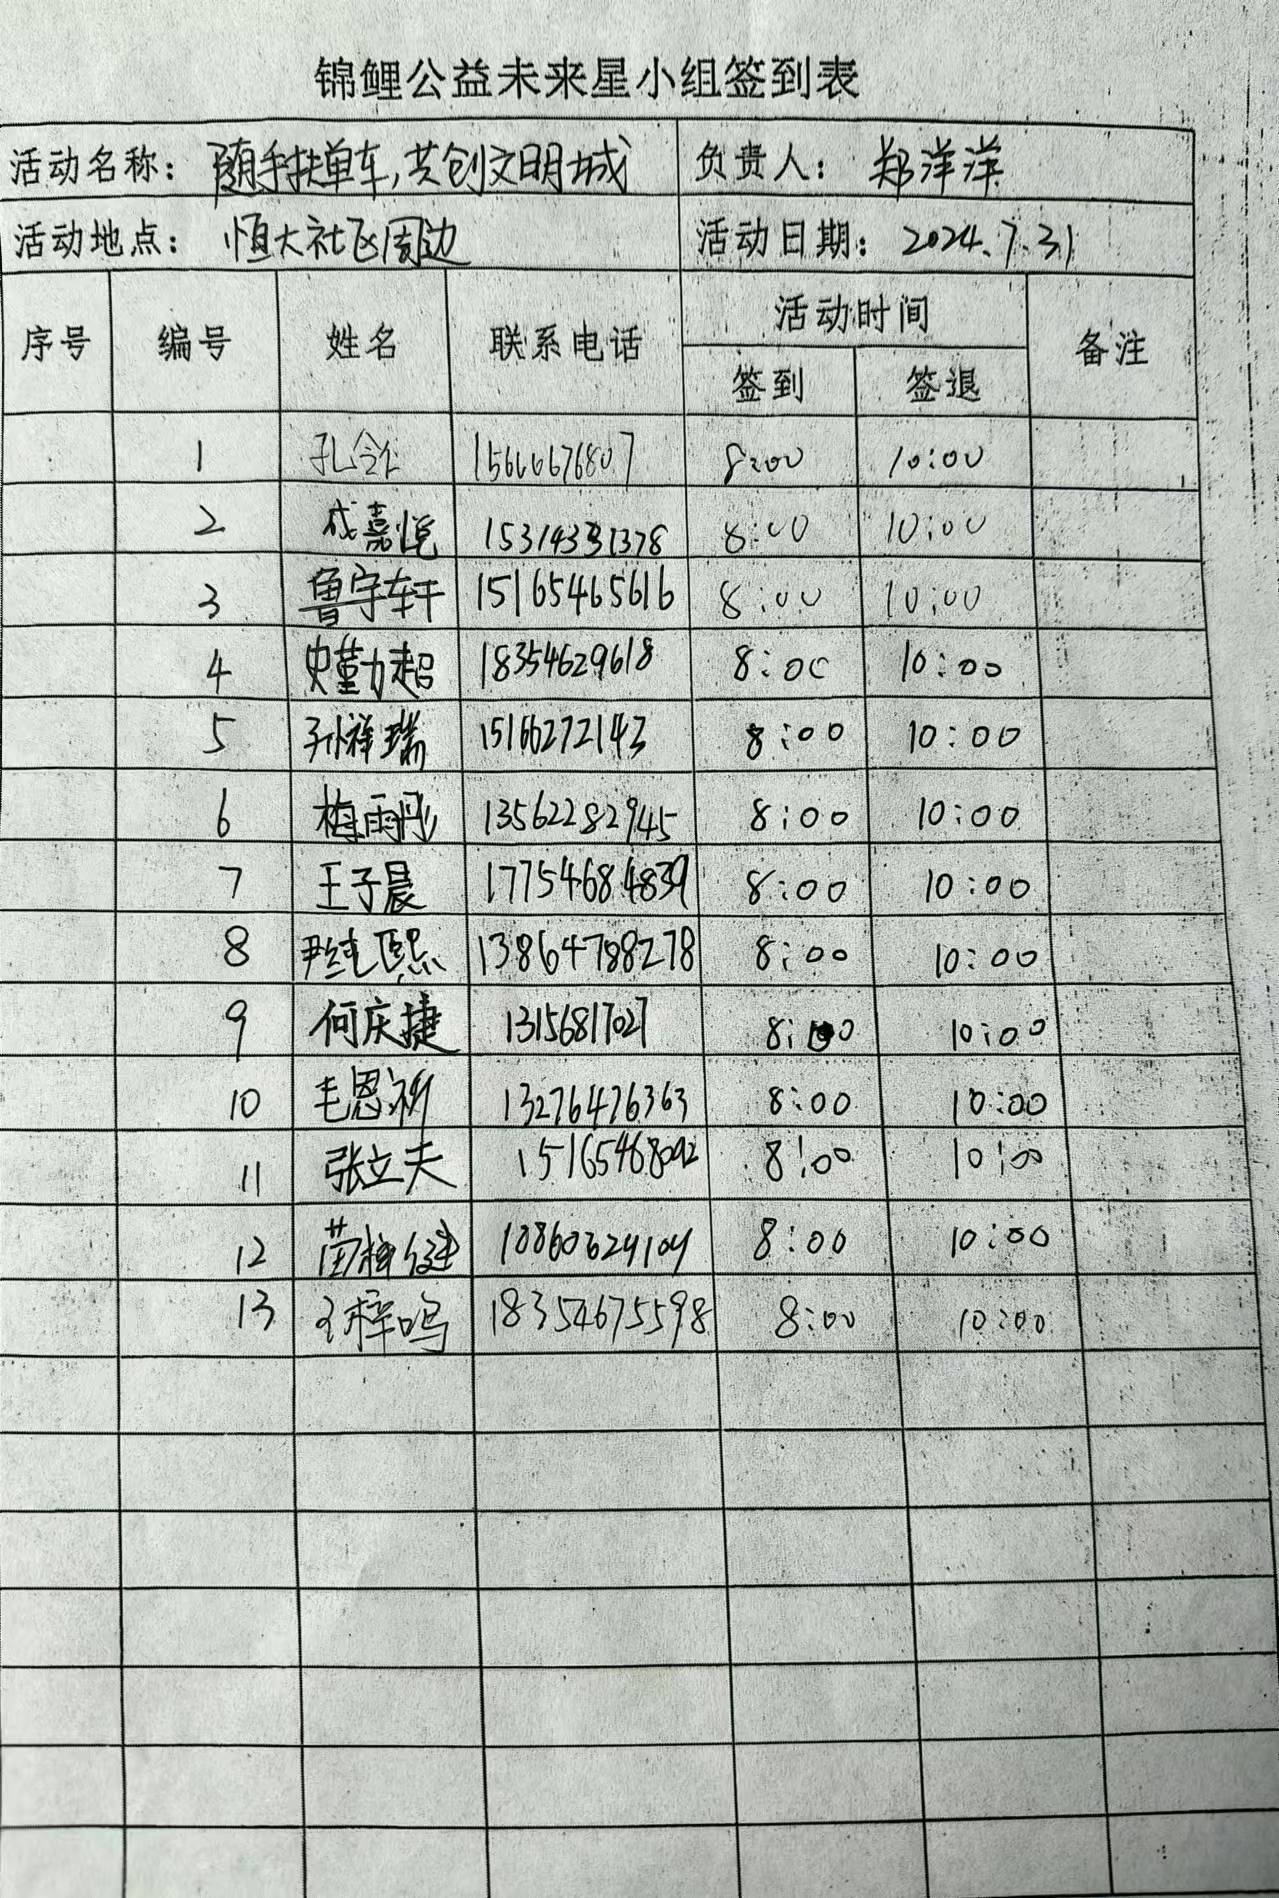 锦鲤公益未来星小组签到表
活动名称：随手扶单车，共创文明城 负责人：郑洋洋
活动地点：恒大社区周边 活动日期：2024.7.31
序号 编号 姓名 联系电话 活动时间 备注
签到 签退
1 孔令 8:00 10:00
2 成嘉悦 8:00 10:00
3 鲁宇轩 15165465616 8:00 10:00
4 史董力超 18354629618 8:00 10:00
5 孙祥瑞 1516272143 8:00 10:00
6 梅雨彤 13562282945 8:00 10:00
7 王子晨 17754684839 8:00 10:00
8 尹纯熙 13864788278 8:00 10:00
9 何庆捷 1315681702 8:00 10:00
10 毛恩祈 13276476363 8:00 10:00
11 张立夫 15165468092 8:00 10:00
12 8:00 10:00
13 王梓鸣 18354675598 8:00 10:00